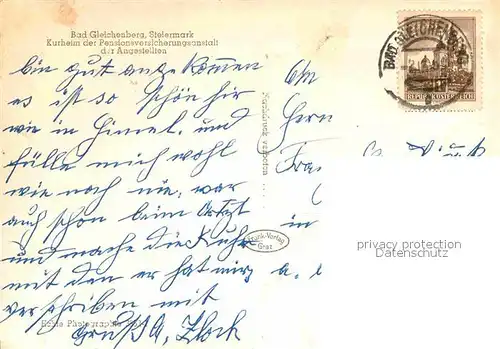 Bad Gleichenberg, Steiermark
Kurheim der Pensionsversicherungsanstalt
der Angestellten
bin gut angekommen
es ist so schön hir
wie in Himel. und
fülle mich wohl
wie noch nie, war
auch schon beim Artzt
und mache die Kuhr
mit den er hat mir
verschriben mit
Gruß A. Zlock
Echte Photographie
Nachdruck verboten
Frank-Verlag
Graz
BAD GLEICHENBERG
REPUBLIK ÖSTERREICH
Herrn
in
privacy protection
Datenschutz